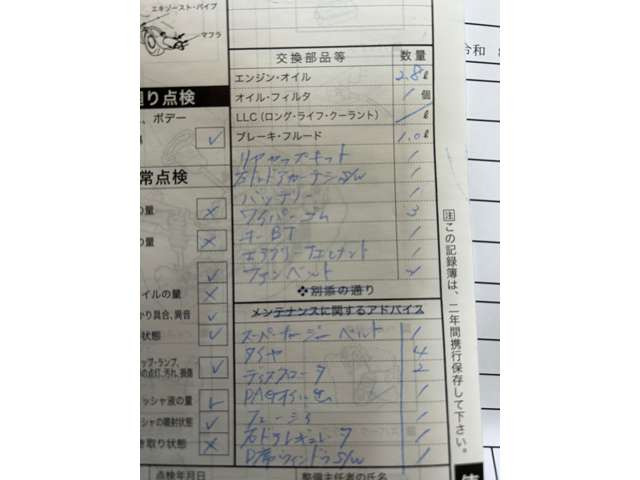 エキゾースト・パイプ
マフラ
交換部品等 数量
エンジン・オイル 2.8 ℓ
オイル・フィルタ 1 個
LLC(ロング・ライフ・クーラント) ℓ
ブレーキ・フルード 1.0 ℓ
リヤカップキット 1
1
バッテリー 1
ワイパーゴム 3
キーBT 1
エアクリーナエレメント 1
ファンベルト
❖別添の通り
メンテナンスに関するアドバイス
スーパーチャージャーベルト 1
タイヤ 4
ディスクロータ 2
1
1
右ドアレギュレータ 1
D席ウィンドウS/W 1
点検年月日
整備主任者の氏名
回り点検
、ボデー
常点検
の量
の量
イルの量
かり具合、異音
状態
ップ・ランプ、
の点灯、汚れ、損傷
ッシャ液の量
シャの噴射状態
き取り状態
注 この記録簿は、二年間携行保存して下さい。
令和